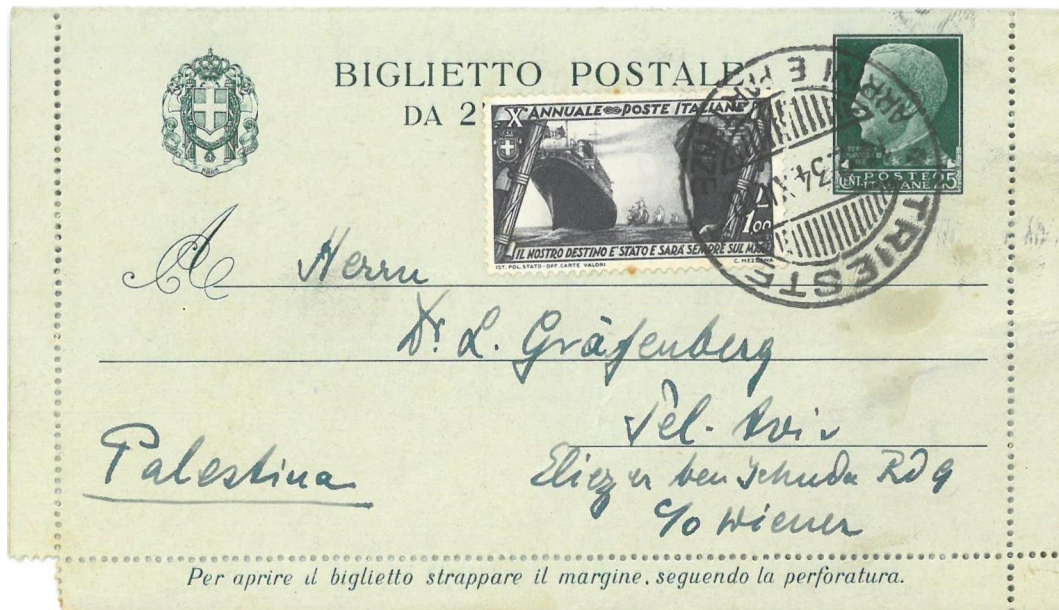 BIGLIETTO POSTALE
DA 2
X ANNUALE POSTE ITALIANE
1.00
IL NOSTRO DESTINO E' STATO E SARÀ SEMPRE SUL MARE
IST. POL. STATO - OFF. CARTE VALORI C. MEZZANA
POSTE
CENT. ITALIANE 25
TRIESTE
ARRIVI E PARTENZE
34.XII
A Herrn
Dr. L. Gräfenberg
Tel-Aviv
Palestina
Eliezer ben Jehuda Rd 9
c/o Wiener
Per aprire il biglietto strappare il margine, seguendo la perforatura.